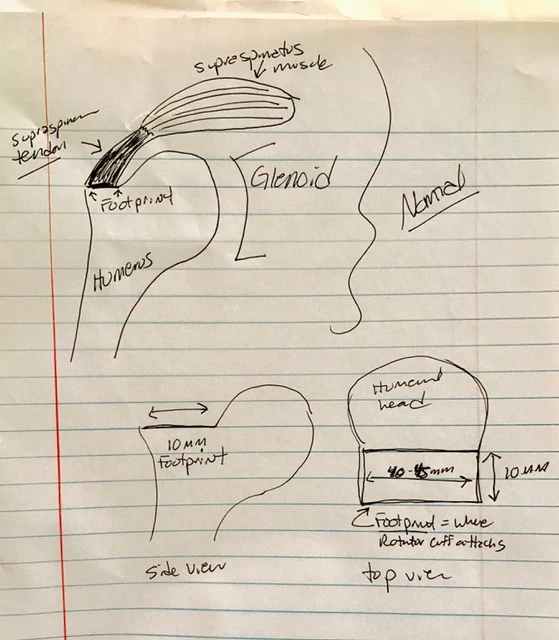 supraspinatus
muscle
tendon
Glenoid
Footprint
Normal
Humerus
Humeral
head
10 MM
Footprint
40-45mm
10 MM
Footprint = where
Rotator cuff attachs
side view
top view